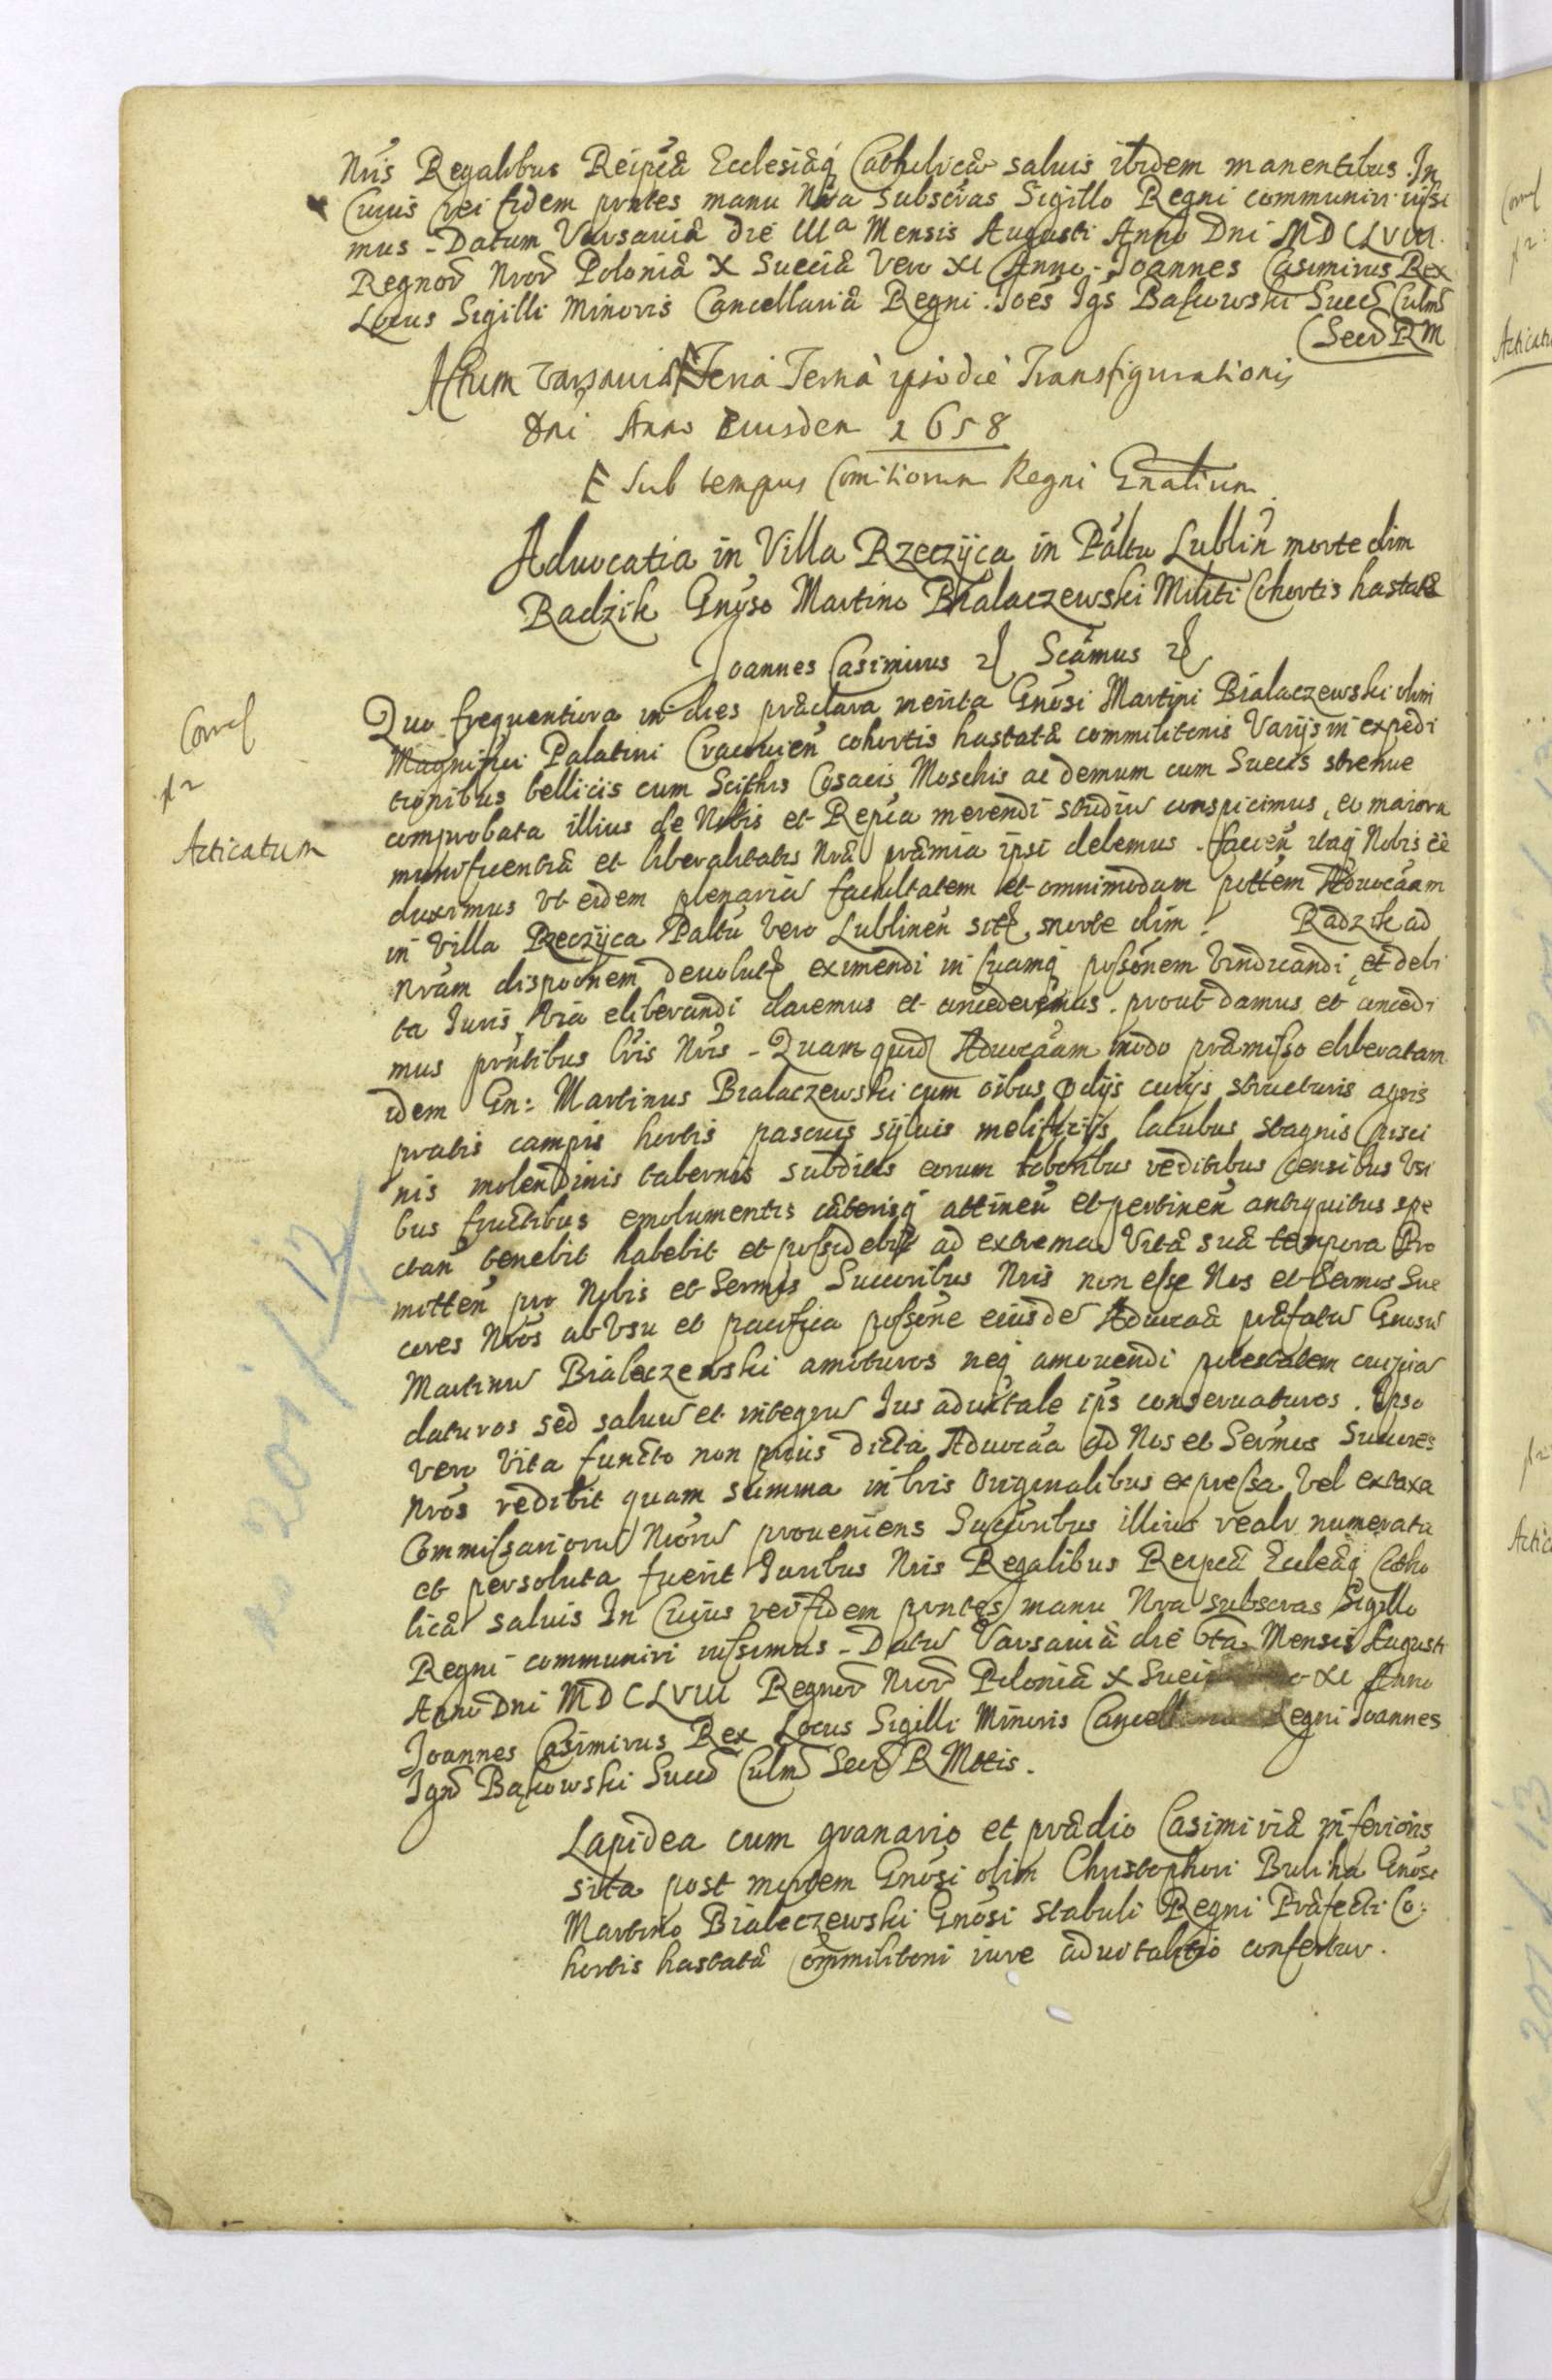 Nris Regalibus Reipcã Ecclesiãq Catholicã saluis ibidem manentibus. In
Cuius rei fidem pntes manu Nra subscras Sigillo Regni communiri iussi
mus - Datum Varsauiã die IIIa Mensis Augusti Anno Dni MDCLVIII.
Regnor Nror Poloniã X Sueciã Vero XI Anno - Joannes Casimirus Rex
Locus Sigilli Minoris Cancellariã Regni. Joes Igs Bąkowski Succ Culm
Secr R M
Actum Varsauiã Feria Terna ipso die Transfigurationis
Dni Anno Eiusdem 1658
Sub tempus Comitiorum Regni Gnalium.
Aduocatia in Villa Rzeczijca in Paltu Lublin morte olim
Radzik Gnoso Martino Bialaczewski Militi Cohortis hastatã
Joannes Casimirus Scamus
Corr
Acticatum
Quo frequentiora in dies prãclara merita Gnosi Martini Bialaczewski olim
Magnifici Palatini Cracouien cohortis hastatã commilitonis Varijs in expedi
tionibus bellicis cum Scithis Cosacis Moschis ac demum cum Suecis strenue
comprobata illius de Nobis et Repca merendi studiu conspicimus, eo maiora
munificentiã et liberalitatis Nrã prãmia ipsi debemus. facien itaq Nobis ee
duximus Vt eidem plenaria facultatem et omnimodam pottem Aduocaam
in Villa Rzeczijca Paltu Vero Lublinen sit morte olim Radzik ad
Nram disponem deuolut eximendi in suamq possonem Vindicandi et debi
ta Iuris Via eliberandi daremus et concederemus. prout damus et concedi
mus pntibus lris Nris - Quam quid Aduocaam modo prãmisso eliberatam
idem Gn: Martinus Bialaczewski cum oibus pdijs curijs structuris agris
pratis campis hortis pascuis syluis mellificijs lacubus stagnis pisci
nis molendinis tabernis subditis eorum laboribus reditibus censibus Vsi
bus fructibus emolumentis cãterisq attinen et pertinen antiquitus spe
ctan tenebit habebit et possidebit ad extrema Vitã suã tempora Pro
mitten pro Nobis et Sermis Succoribus Nris non esse Nos et Sermos Suc
cores Nros ab Vsu et pacifica possone eiusde Aduocaã prãfatu Gnosu
Martinu Bialaczewski amoturos neq amouendi potestatem cuipia
daturos sed saluu et integru Ius aduitale ips conseruaturos. Ipso
vero Vita functo non prius dicta Aduocaa ad Nos et Sermos Succores
Nros redibit quam summa in lris Originalibus expressa Vel ex taxa
Commissarioru Nroru proueniens Succoribus illius realr numerata
et persoluta fuerit Iuribus Nris Regalibus Reipcã Eccleãq Catho
licã saluis In Cuius rei fidem pntes manu Nra subscras Sigillo
Regni communiri iussimus - Datu Varsauiã die 6ta Mensis Augusti
Anno Dni MDCLVIII Regnor Nror Poloniã X Sueci o XI Anno
Joannes Casimirus Rex Locus Sigilli Minoris Cancell Regni Joannes
Ign Bąkowski Succ Culm Secr R Mttis.
Lapidea cum granario et prãdio Casimiriã inferioris
sita post mortem Gnosi olim Christophori Gnoso
Martino Bialeczewski Gnosi stabuli Regni Prãfecti Co:
hortis hastatã Commilitoni iure aduitalitio confertur.